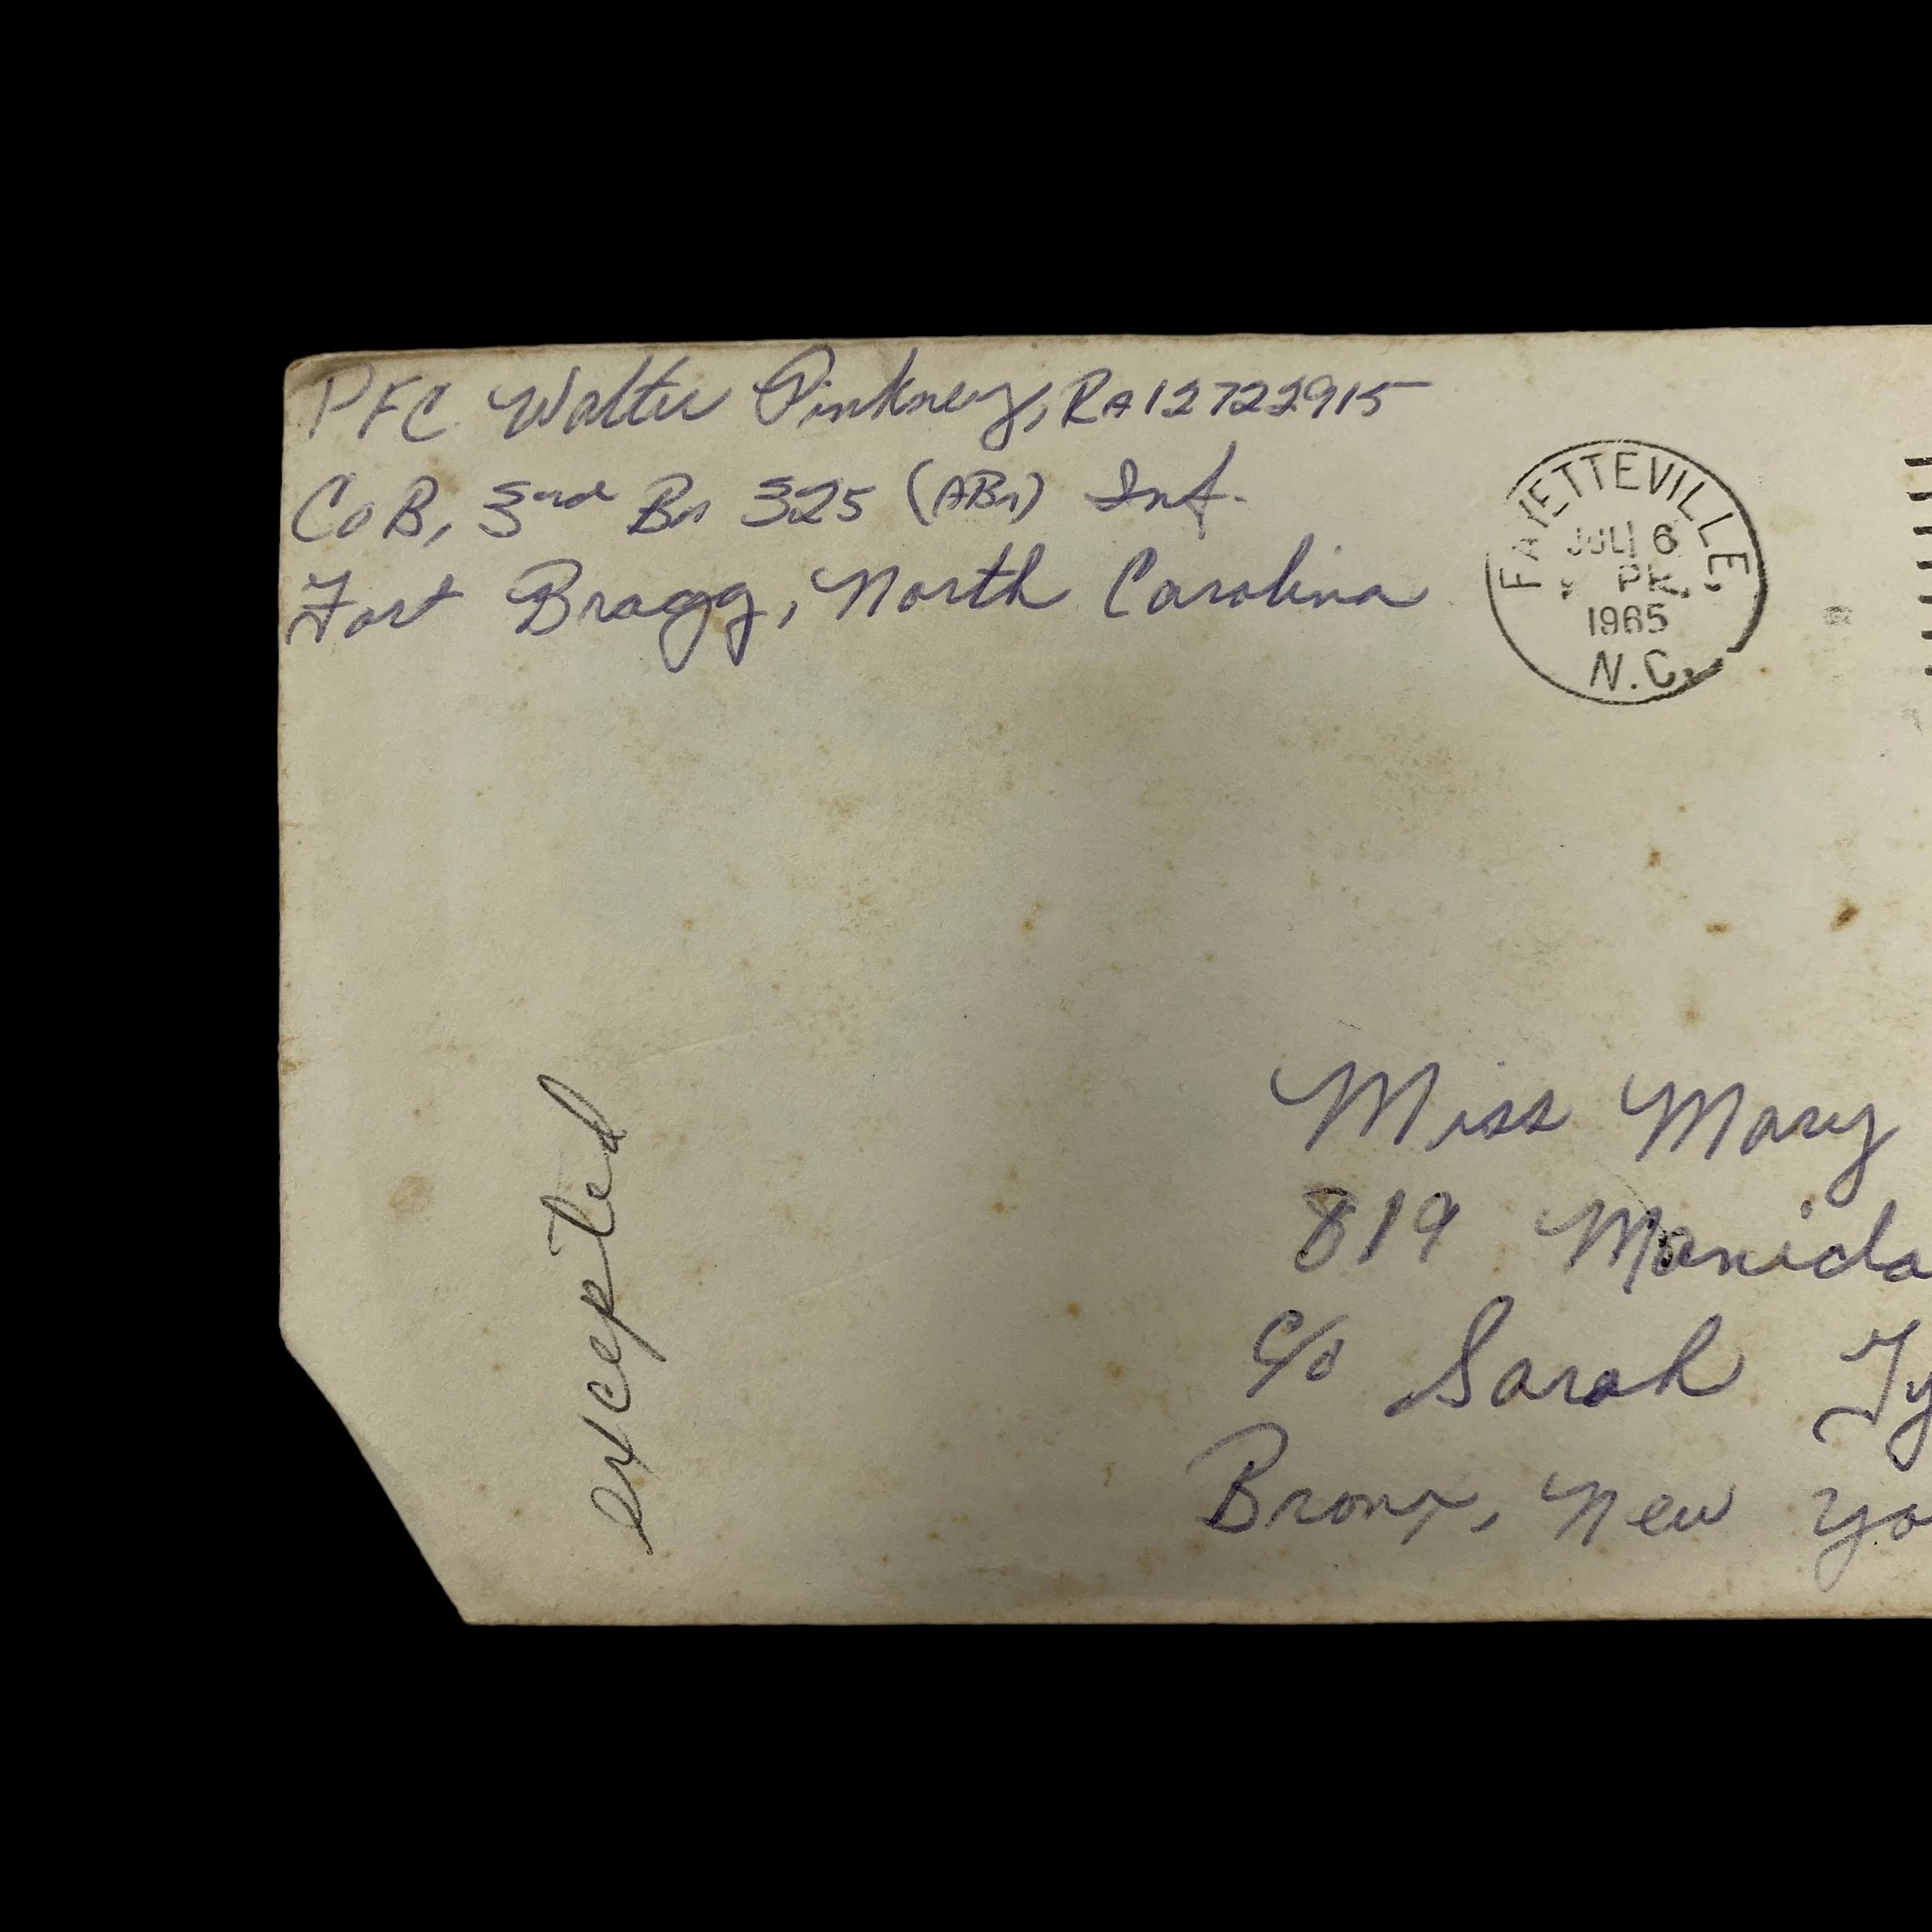 PFC Walter Pinkney, RA12722915
Co B, 3rd Bn 325 (ABn) Inf.
Fort Bragg, North Carolina
FAYETTEVILLE
JUL 6
1965
N.C.
Miss Mary
819 Manida
c/o Sarah Ty
Bronx, New Yo
excepted